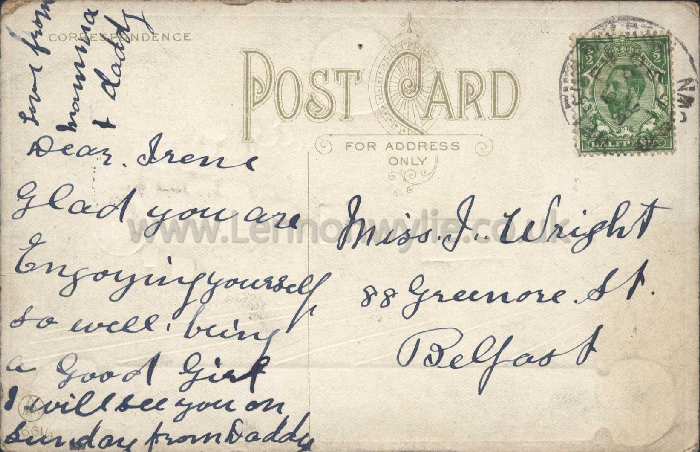 Love from
mamma
& daddy
CORRESPONDENCE
POST CARD
FOR ADDRESS
ONLY
Dear. Irene
Glad you are
Engoying yourself
so well. being
a Good Girl
I will see you on
Sunday from Daddy
Miss. J.. Wright
88 Greenore. St.
Belfast
www.Lennonwylie.co.uk